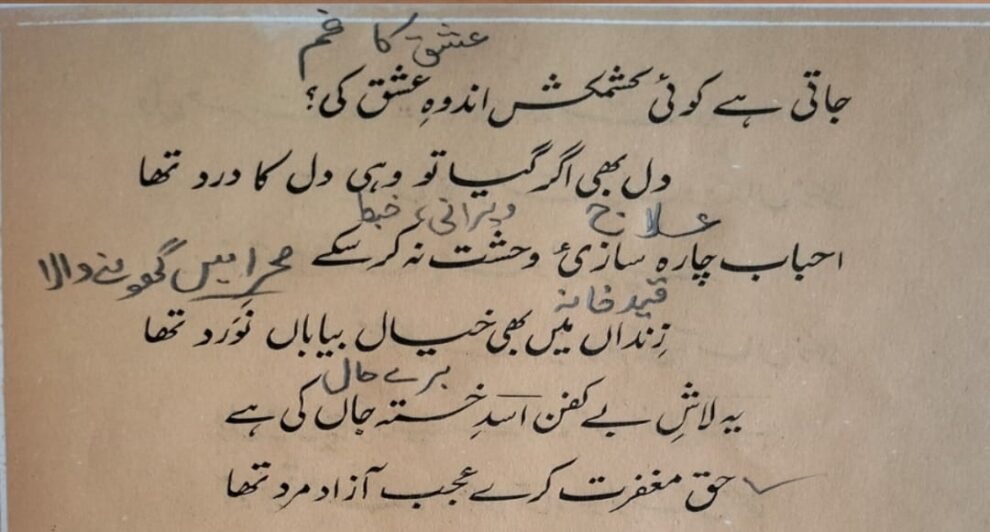 عشق کا غم
جاتی ہے کوئی کشمکش اندوہِ عشق کی؟
دل بھی اگر گیا تو وہی دل کا درد تھا
علاج ویرانی، خبط
احباب چارہ سازیٔ وحشت نہ کر سکے صحرا میں گھومنے والا
قید خانہ
زِنداں میں بھی خیال بیاباں نَوَرد تھا
برے حال
یہ لاشِ بے کفن اسدِ خستہ جاں کی ہے
حق مغفرت کرے عجب آزاد مرد تھا